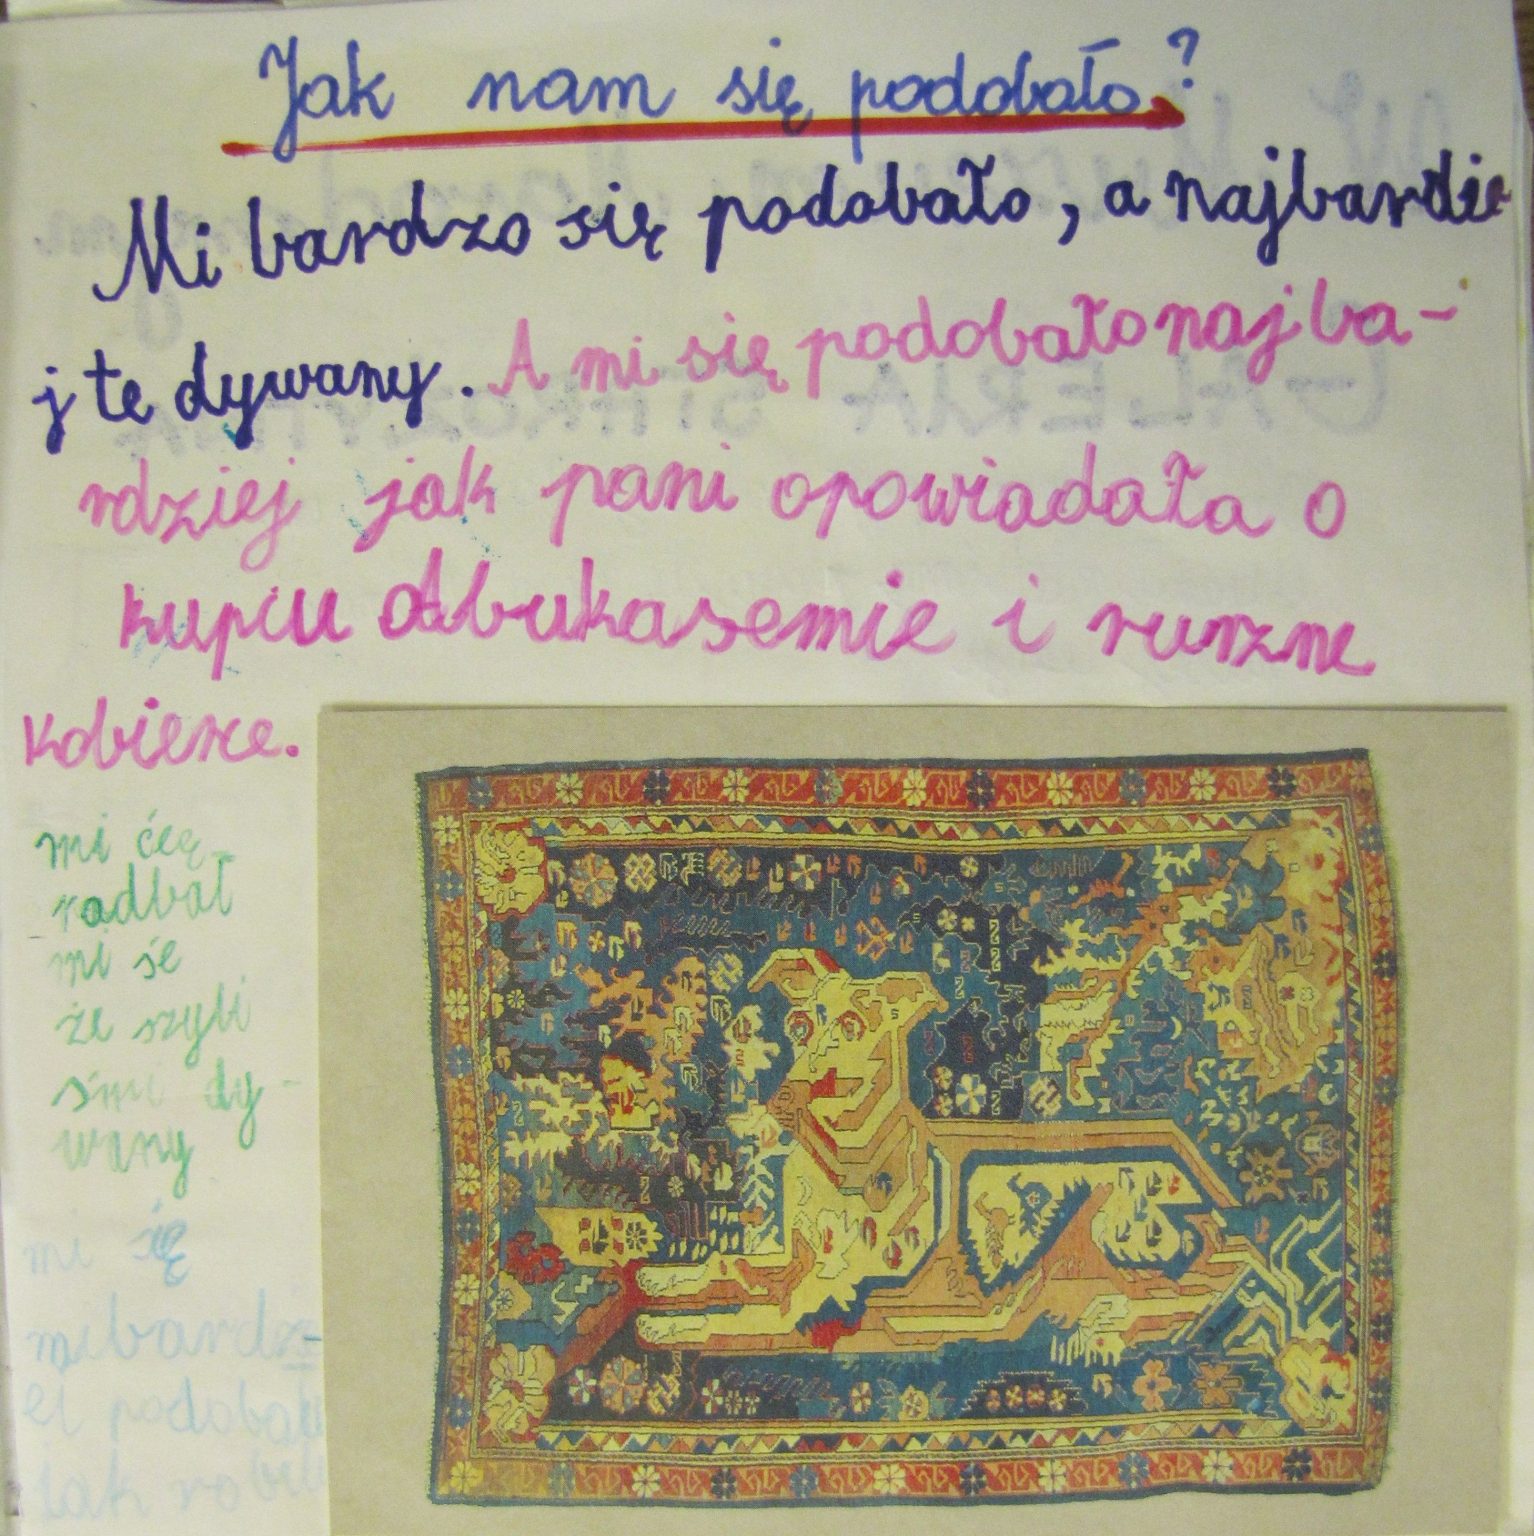 Jak nam się podobało?
Mi bardzo się podobało, a najbardzie
j te dywany. A mi się podobało najba-
rdziej jak pani opowiadała o
kupcu Abukasemie i rurzne
kobierce.
mi ćeę
radbał
mi śe
że szyli
śmi dy-
wany
mi się
bardz
podobał
jak robili